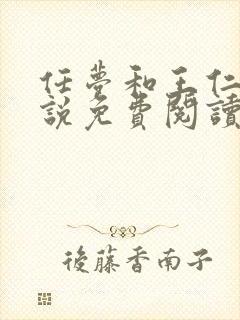 任夢和王仁
說免費閱讀
後藤香南子